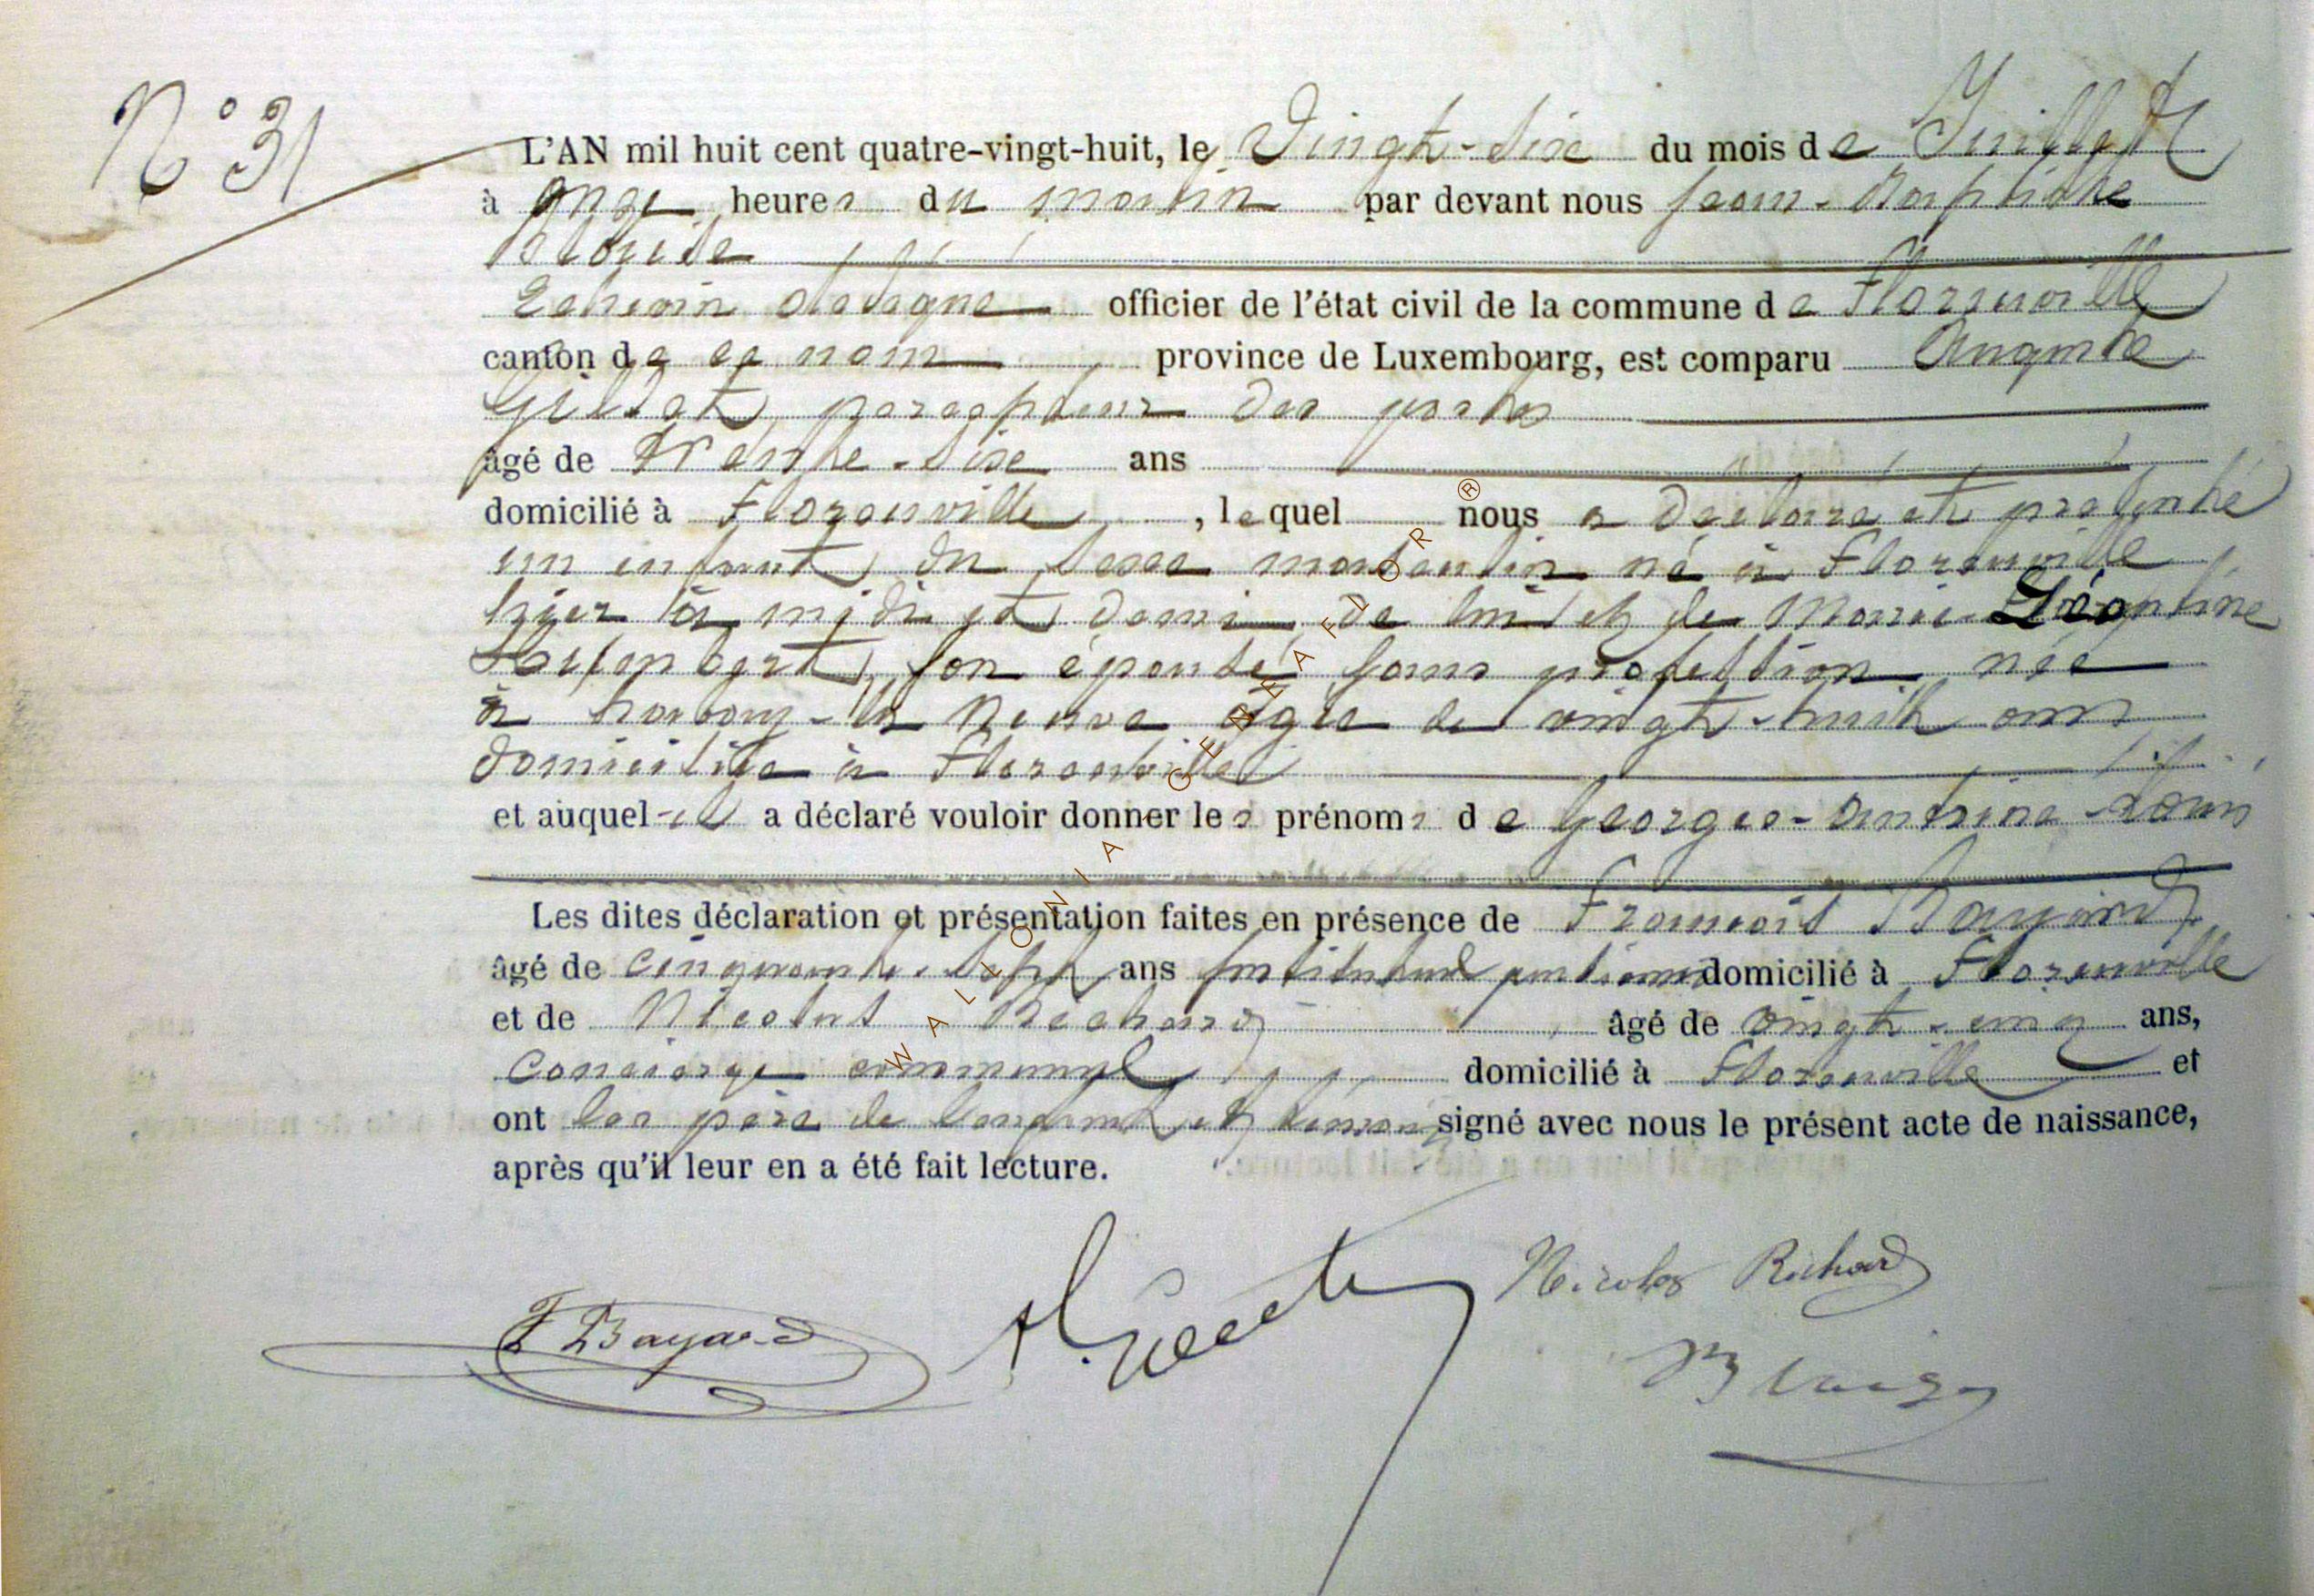 N° 31
L'AN mil huit cent quatre-vingt-huit, le Vingt-Six du mois de Juillet
à onze heures du matin par devant nous Jean-Baptiste
Echevin délégué officier de l'état civil de la commune de Florenville
canton de ce nom province de Luxembourg, est comparu Auguste
percepteur des postes
âgé de Trente-Six ans
domicilié à Florenville, lequel nous a déclaré et présenté
un enfant du sexe masculin né à Florenville
hier à midi et demi de lui et de Marie-Léontine
son épouse sans profession née
à habay-la Neuve âgée de vingt-huit ans
domiciliée à Florenville
et auquel il a déclaré vouloir donner les prénoms de Georges-Antoine-Louis
Les dites déclaration et présentation faites en présence de François Bayard
âgé de cinquante-sept ans instituteur pensionné domicilié à Florenville
et de Nicolas Richard âgé de vingt-cinq ans,
concierge communal domicilié à Florenville et
ont les père de l'enfant et témoins signé avec nous le présent acte de naissance,
après qu'il leur en a été fait lecture.
F Bayard
Nicolas Richard
WALLONIA GENEAFLOR ®